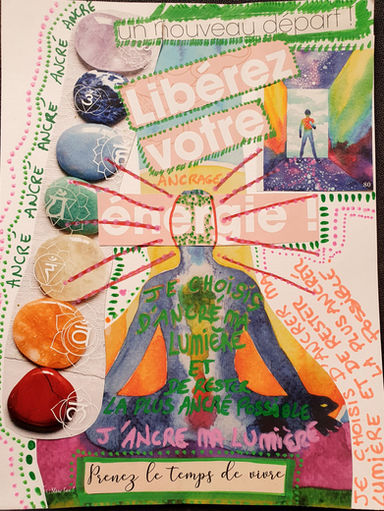 un nouveau départ !
Libérez
votre
ANCRAGE
énergie !
ANCRÉ ANCRÉ ANCRÉ ANCRE ANCRE
80
JE CHOISIS
D'ANCRÉ MA
LUMIÈRE
ET
DE RESTER
LA PLUS ANCRÉ POSSIBLE
J'ANCRE MA LUMIÈRE
JE CHOISIS D'ANCRER MA
LUMIÈRE ET DE RESTER
LA PLUS ANCRER
POSSIBLE
Prenez le temps de vivre